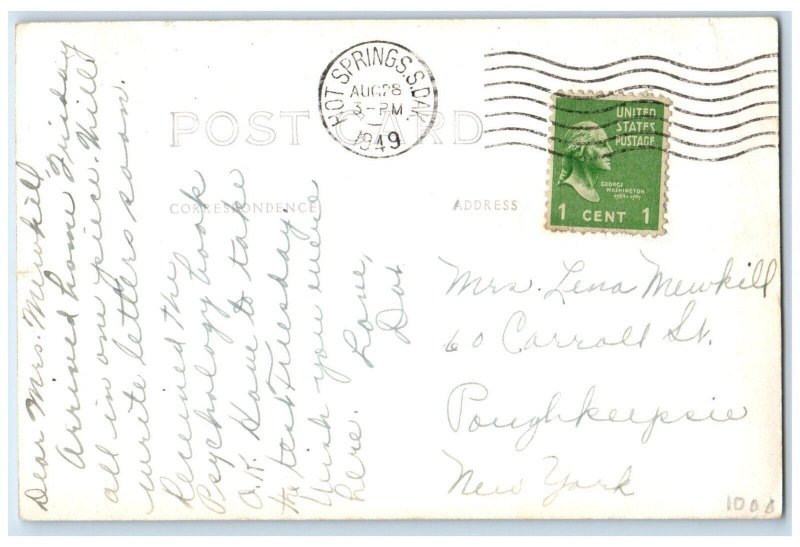 POST CARD
CORRESPONDENCE
ADDRESS
HOT SPRINGS. S. DAK.
AUG 28
3-PM
1949
UNITED
STATES
POSTAGE
GEORGE
WASHINGTON
1789-1797
1 CENT 1
Dear Mrs. Mewkill,
Arrived home Friday
all in one piece. Will
write letters soon.
Received the
Psychology book
O.K. Have to take
the test Tuesday.
Wish you were
here.
Love,
Dot
Mrs. Lena Mewkill
60 Carroll St.
Poughkeepsie
New York
1000